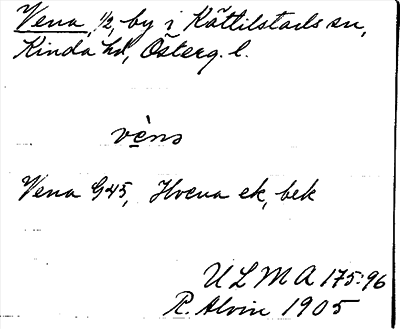 Vena, 1/2, by i Kättilstads sn,
Kinda hd, Österg. l.
vèna
Vena G45, Hvena ek, bek
ULMA 175:96
R. Alvin 1905